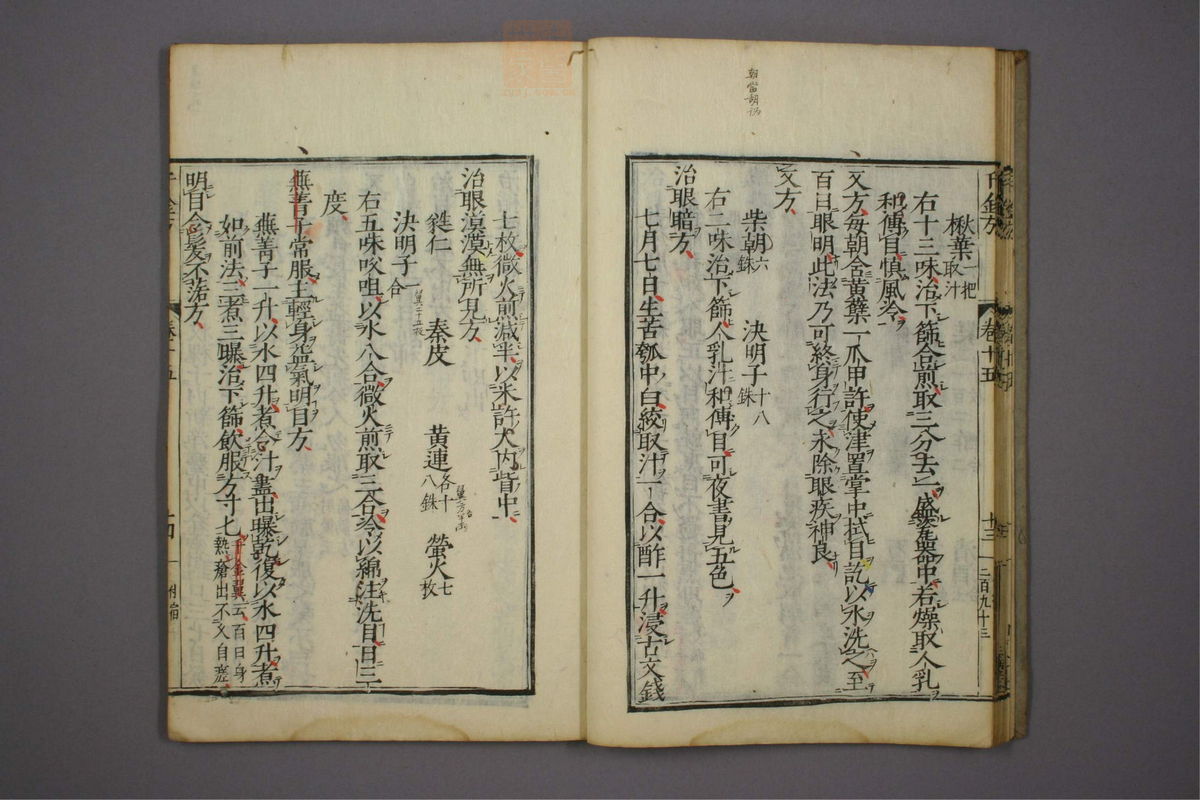 千金方 卷十五 十三 二百九十三
楸葉一把取汁
右十三味治下篩合煎取三分去一盛瓷器中若燥取人乳
和傅目慎風冷
又方每朝含黃蘗一爪甲許使津置掌中拭目訖以水洗之至
百日眼明此法乃可終身行之永除眼疾神良
又方
朝當胡訛
柴朝六銖 決明子十八銖
右二味治下篩人乳汁和傅目可夜書見五色
治眼暗方
七月七日生苦瓠中白絞取汁一合以酢一升浸古文錢
七枚微火煎減半以米許大內眥中
治眼漠漠無所見方
蕤仁 秦皮 黃連各十八銖 螢火七枚
決明子一合
右五味㕮咀以水八合微火煎取三合冷以綿注洗目日三
度
蕪菁子常服主輕身益氣明目方
蕪菁子一升以水四升煮令汁盡出曝乾復以水四升煮
如前法三煮三曝治下篩飲服方寸匕千金翼云百日身熱瘡出不久自瘥
明目令髮不落方
卷十五